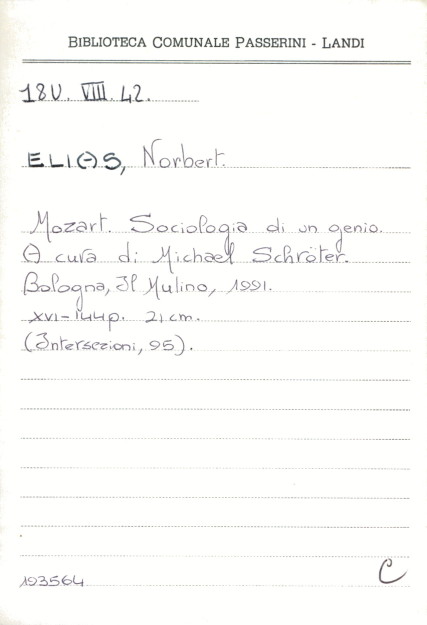 BIBLIOTECA COMUNALE PASSERINI - LANDI
18U. VIII. 42.
ELIAS, Norbert.
Mozart. Sociologia di un genio.
A cura di Michael Schröter.
Bologna, Il Mulino, 1991.
XVI-144p. 21 cm.
(Intersezioni, 95).
193564
C